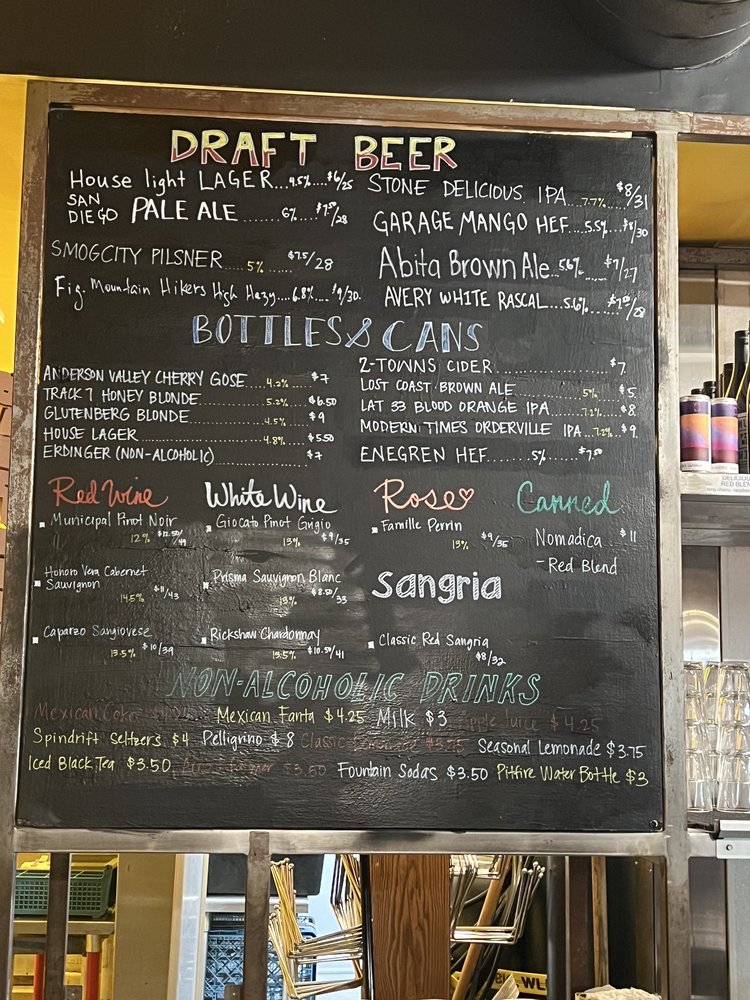 DRAFT BEER
House light LAGER...4.5%....$6/25
SAN DIEGO PALE ALE.......6%....$7.50/28
SMOGCITY PILSNER....5%......$7.5/28
Fig. Mountain Hikers High Hazy....6.8%....$9/30.
STONE DELICIOUS IPA....7.7%..$8/31
GARAGE MANGO HEF....5.5%....$8/30
Abita Brown Ale...5.6%......$7/27
AVERY WHITE RASCAL....5.6%....$7.50/28
BOTTLES & CANS
ANDERSON VALLEY CHERRY GOSE....4.2%....$7
TRACK 7 HONEY BLONDE....5.2%....$6.50
GLUTENBERG BLONDE....4.5%....$9
HOUSE LAGER....4.8%....$5.50
ERDINGER (NON-ALCOHOLIC)....$7
2-TOWNS CIDER....$7
LOST COAST BROWN ALE....5%....$5
LAT 33 BLOOD ORANGE IPA....7.2%....$8
MODERN TIMES ORDERVILLE IPA...7.2%..$9
ENEGREN HEF....5%....$7.50
Red Wine
Municipal Pinot Noir
12% $12.50/49
Honoro Vera Cabernet Sauvignon
14.5% $11/43
Caparzo Sangiovese
13.5% $10/39
White Wine
Giocato Pinot Grigio
13% $9/35
Prisma Sauvignon Blanc
13% $8.50/33
Rickshaw Chardonnay
13.5% $10.50/41
Rose
Famille Perrin
13% $9/35
Sangria
Classic Red Sangria
$8/32
Canned
Nomadica $11
-Red Blend
NON-ALCOHOLIC DRINKS
Mexican Coke Mexican Fanta $4.25 Milk $3 Apple Juice $4.25
Spindrift Seltzers $4 Pellegrino $8 Classic Lemonade $3.75 Seasonal Lemonade $3.75
Iced Black Tea $3.50 Arnold Palmer $3.50 Fountain Sodas $3.50 Pitfire Water Bottle $3
DELICIOUS
RED BLEND